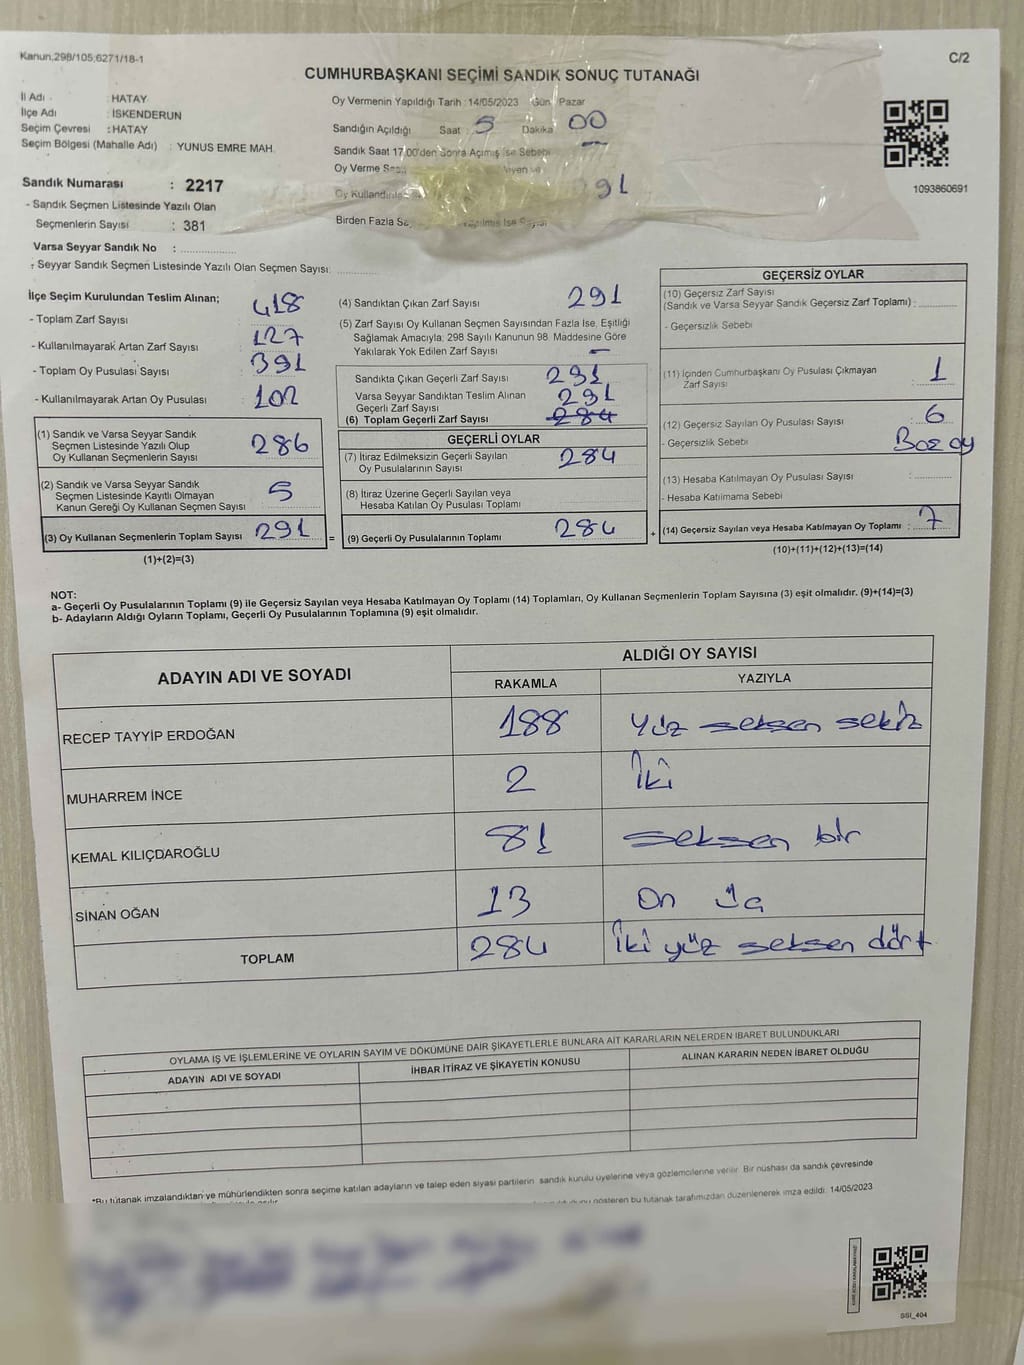 Kanun.298/105;6271/18-1
C/2
CUMHURBAŞKANI SEÇİMİ SANDIK SONUÇ TUTANAĞI
İl Adı : HATAY
İlçe Adı : İSKENDERUN
Seçim Çevresi : HATAY
Seçim Bölgesi (Mahalle Adı) : YUNUS EMRE MAH.
Sandık Numarası : 2217
- Sandık Seçmen Listesinde Yazılı Olan
Seçmenlerin Sayısı : 381
Varsa Seyyar Sandık No :
- Seyyar Sandık Seçmen Listesinde Yazılı Olan Seçmen Sayısı:
Oy Vermenin Yapıldığı Tarih :14/05/2023 Gün Pazar
Sandığın Açıldığı Saat : 5 Dakika 00
Sandık Saat 17.00'den Sonra Açılmış İse Sebebi
Oy Verme
Oy 291
Birden Fazla
1093860691
İlçe Seçim Kurulundan Teslim Alınan;
- Toplam Zarf Sayısı 418
- Kullanılmayarak Artan Zarf Sayısı 127
- Toplam Oy Pusulası Sayısı 391
- Kullanılmayarak Artan Oy Pusulası 102
(1) Sandık ve Varsa Seyyar Sandık
Seçmen Listesinde Yazılı Olup
Oy Kullanan Seçmenlerin Sayısı 286
(2) Sandık ve Varsa Seyyar Sandık
Seçmen Listesinde Kayıtlı Olmayan
Kanun Gereği Oy Kullanan Seçmen Sayısı 5
(3) Oy Kullanan Seçmenlerin Toplam Sayısı 291
(1)+(2)=(3)
=
(4) Sandıktan Çıkan Zarf Sayısı 291
(5) Zarf Sayısı Oy Kullanan Seçmen Sayısından Fazla İse, Eşitliği
Sağlamak Amacıyla; 298 Sayılı Kanunun 98. Maddesine Göre
Yakılarak Yok Edilen Zarf Sayısı –
Sandıkta Çıkan Geçerli Zarf Sayısı 291
Varsa Seyyar Sandıktan Teslim Alınan
Geçerli Zarf Sayısı 291
(6) Toplam Geçerli Zarf Sayısı 284
GEÇERLİ OYLAR
(7) İtiraz Edilmeksizin Geçerli Sayılan
Oy Pusulalarının Sayısı 284
(8) İtiraz Üzerine Geçerli Sayılan veya
Hesaba Katılan Oy Pusulası Toplamı
(9) Geçerli Oy Pusulalarının Toplamı 284
+
GEÇERSİZ OYLAR
(10) Geçersiz Zarf Sayısı
(Sandık ve Varsa Seyyar Sandık Geçersiz Zarf Toplamı) :
- Geçersizlik Sebebi
(11) İçinden Cumhurbaşkanı Oy Pusulası Çıkmayan
Zarf Sayısı : 1
(12) Geçersiz Sayılan Oy Pusulası Sayısı : 6
- Geçersizlik Sebebi Boz oy
(13) Hesaba Katılmayan Oy Pusulası Sayısı :
- Hesaba Katılmama Sebebi
(14) Geçersiz Sayılan veya Hesaba Katılmayan Oy Toplamı : 7
(10)+(11)+(12)+(13)=(14)
NOT:
a- Geçerli Oy Pusulalarının Toplamı (9) ile Geçersiz Sayılan veya Hesaba Katılmayan Oy Toplamı (14) Toplamları, Oy Kullanan Seçmenlerin Toplam Sayısına (3) eşit olmalıdır. (9)+(14)=(3)
b- Adayların Aldığı Oyların Toplamı, Geçerli Oy Pusulalarının Toplamına (9) eşit olmalıdır.
ADAYIN ADI VE SOYADI ALDIĞI OY SAYISI
RAKAMLA YAZIYLA
RECEP TAYYİP ERDOĞAN 188 Yüz seksen sekiz
MUHARREM İNCE 2 İki
KEMAL KILIÇDAROĞLU 81 seksen bir
SİNAN OĞAN 13 On üç
TOPLAM 284 İki yüz seksen dört
OYLAMA İŞ VE İŞLEMLERİNE VE OYLARIN SAYIM VE DÖKÜMÜNE DAİR ŞİKAYETLERLE BUNLARA AİT KARARLARIN NELERDEN İBARET BULUNDUKLARI
ADAYIN ADI VE SOYADI İHBAR İTİRAZ VE ŞİKAYETİN KONUSU ALINAN KARARIN NEDEN İBARET OLDUĞU
*Bu tutanak imzalandıktan ve mühürlendikten sonra seçime katılan adayların ve talep eden siyasi partilerin sandık kurulu üyelerine veya gözlemcilerine verilir. Bir nüshası da sandık çevresinde
gösteren bu tutanak tarafımızdan düzenlenerek imza edildi. 14/05/2023
SSI_404